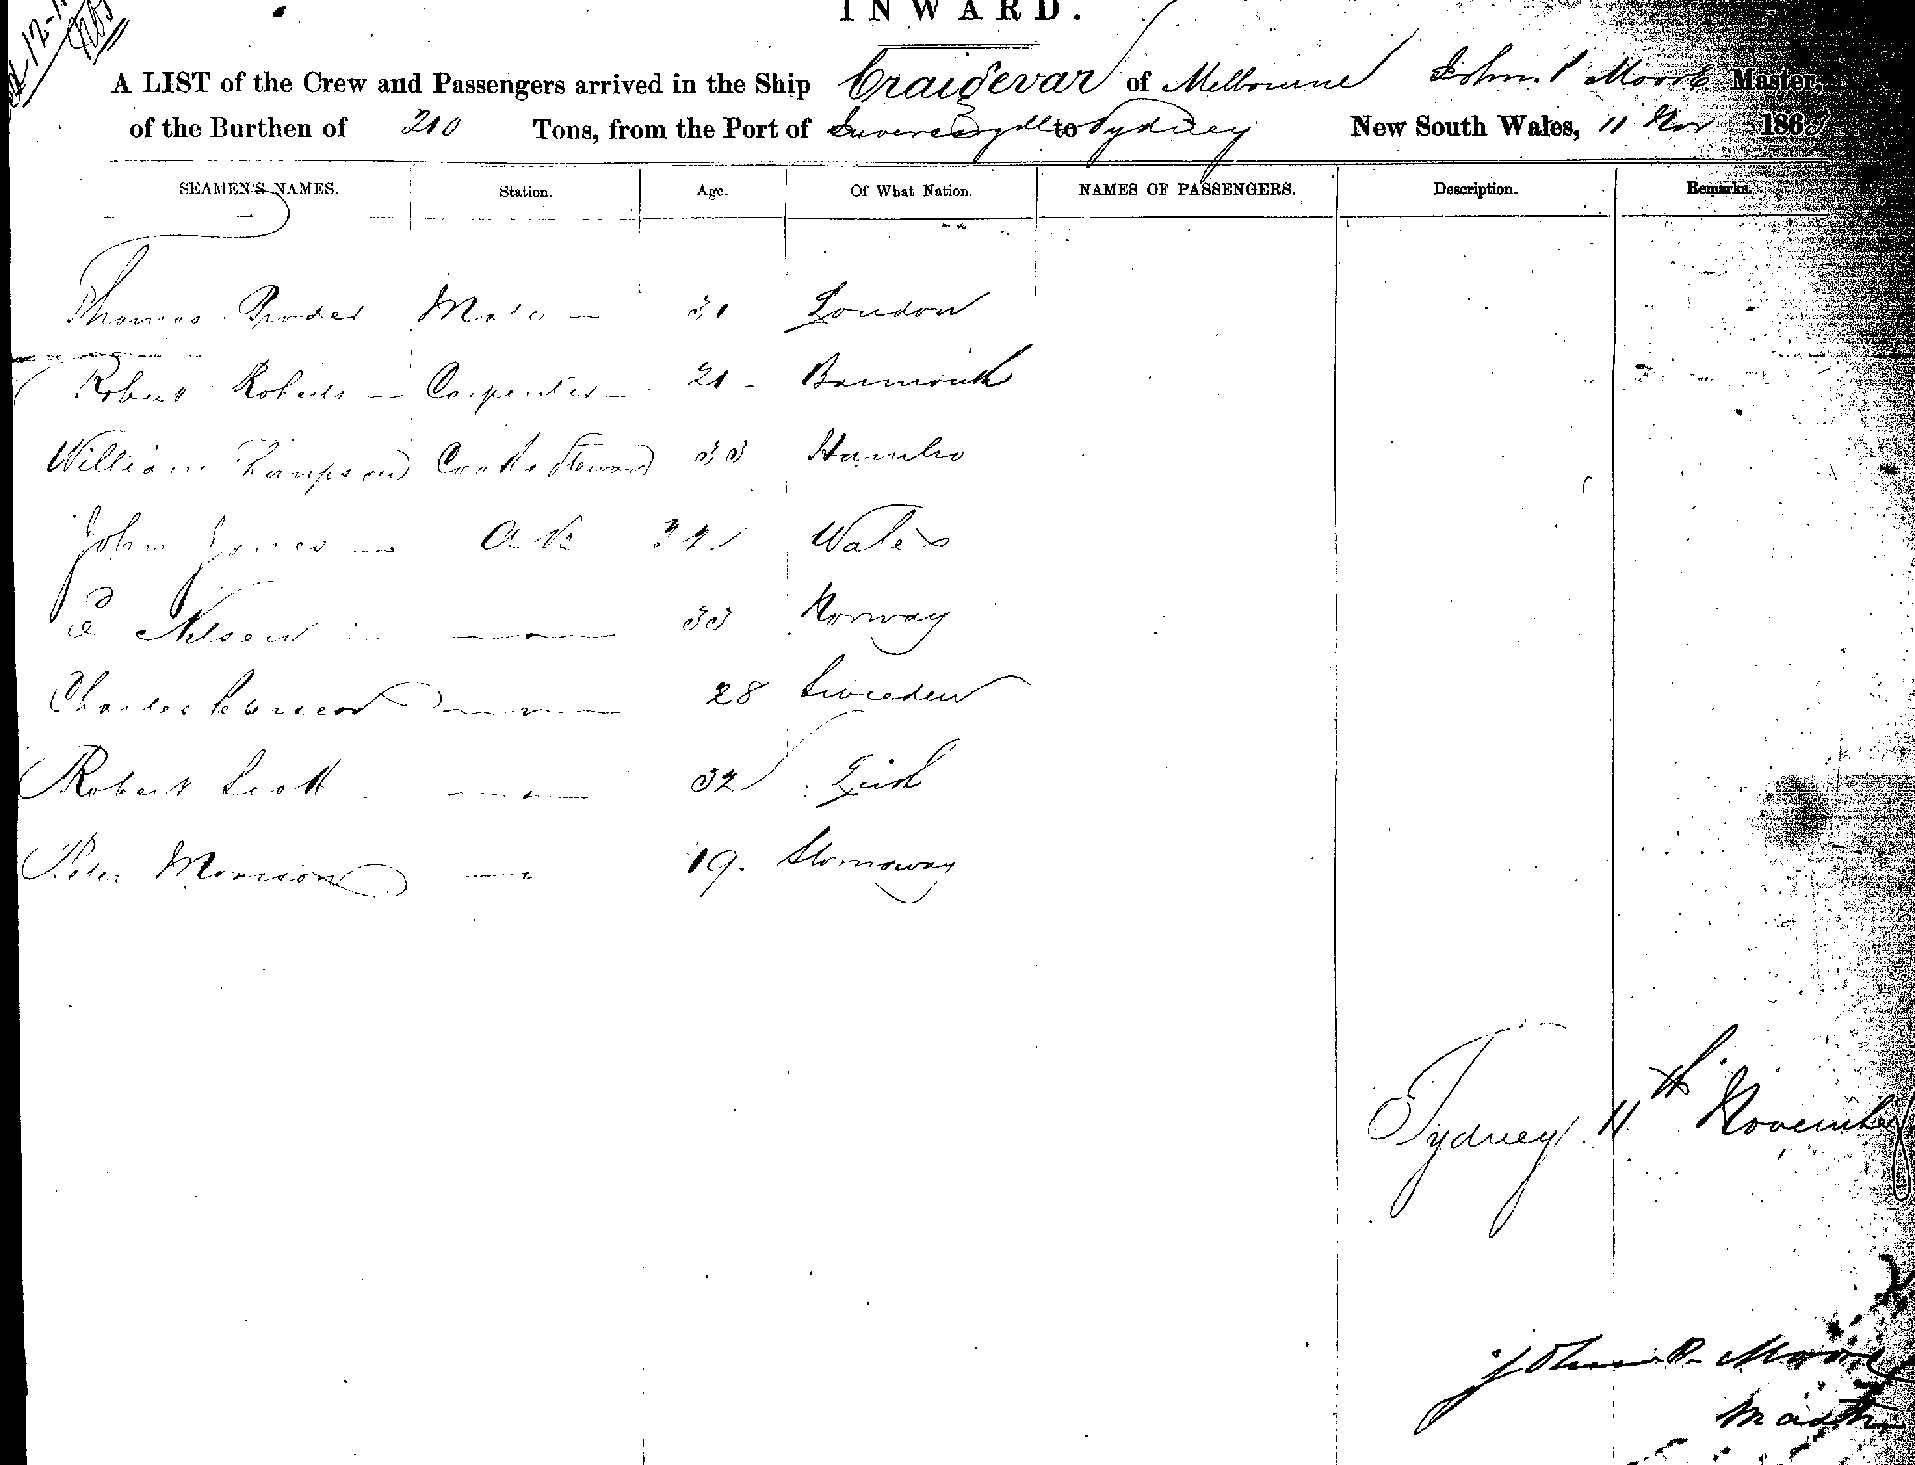 INWARD.
A LIST of the Crew and Passengers arrived in the Ship Craigevar of Melbourne John P Moore Master,
of the Burthen of 210 Tons, from the Port of Invercargill to Sydney New South Wales, 11 Nov 186
SEAMEN'S NAMES. Station. Age. Of What Nation. NAMES OF PASSENGERS. Description. Remarks.
Thomas Mate 31 London
Robert Roberts Carpenter 21
William Cook & Steward 33 Hambro
John Jones A B Wales
Nelson 33 Norway
Charles 28 Sweeden
Robert Scott 32
Peter Morrison 19. Stornoway
Sydney 11th November
John P. Moore
Master